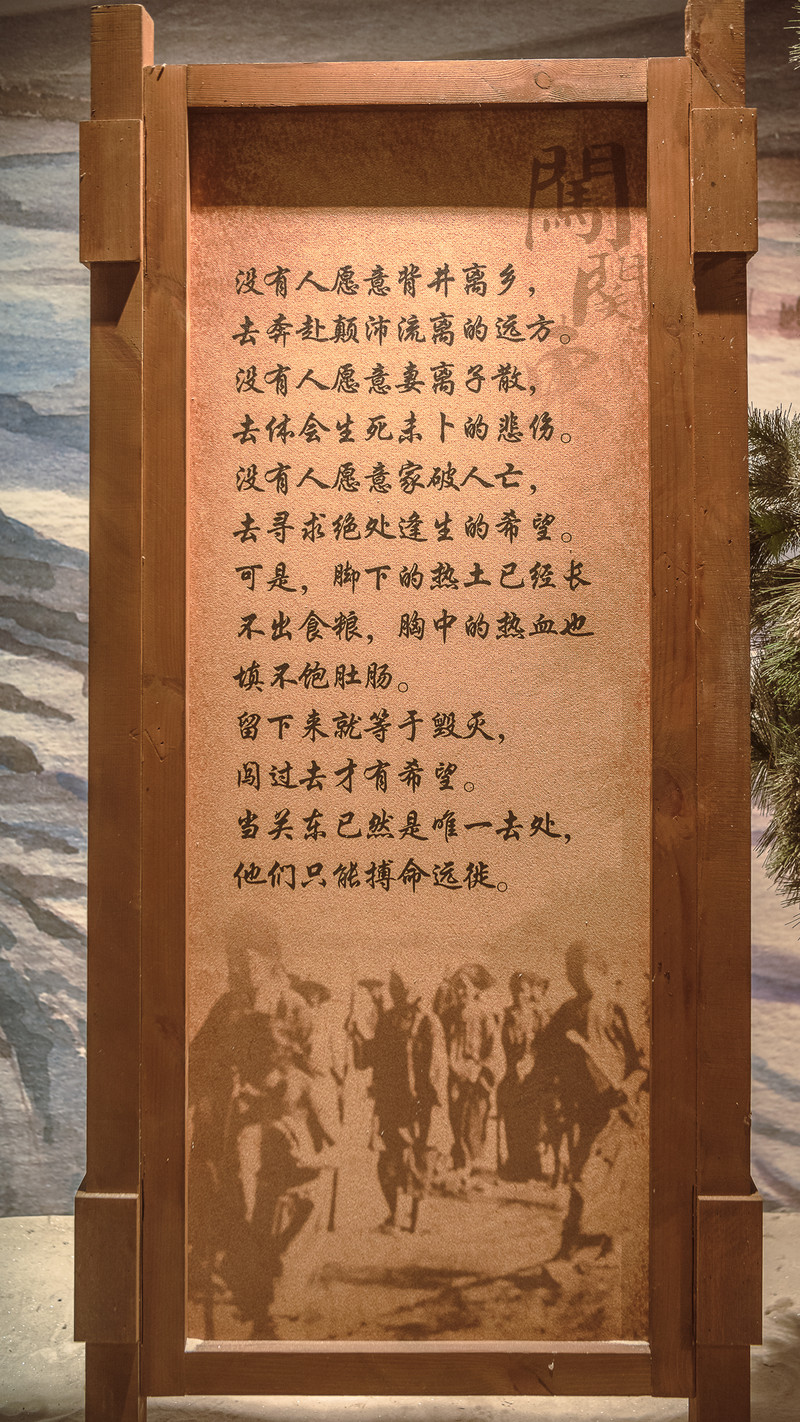 闖
關
東
没有人愿意背井离乡，
去奔赴颠沛流离的远方。
没有人愿意妻离子散，
去体会生死未卜的悲伤。
没有人愿意家破人亡，
去寻求绝处逢生的希望。
可是，脚下的热土已经长
不出食粮，胸中的热血也
填不饱肚肠。
留下来就等于毁灭，
闯过去才有希望。
当关东已然是唯一去处，
他们只能搏命远徙。